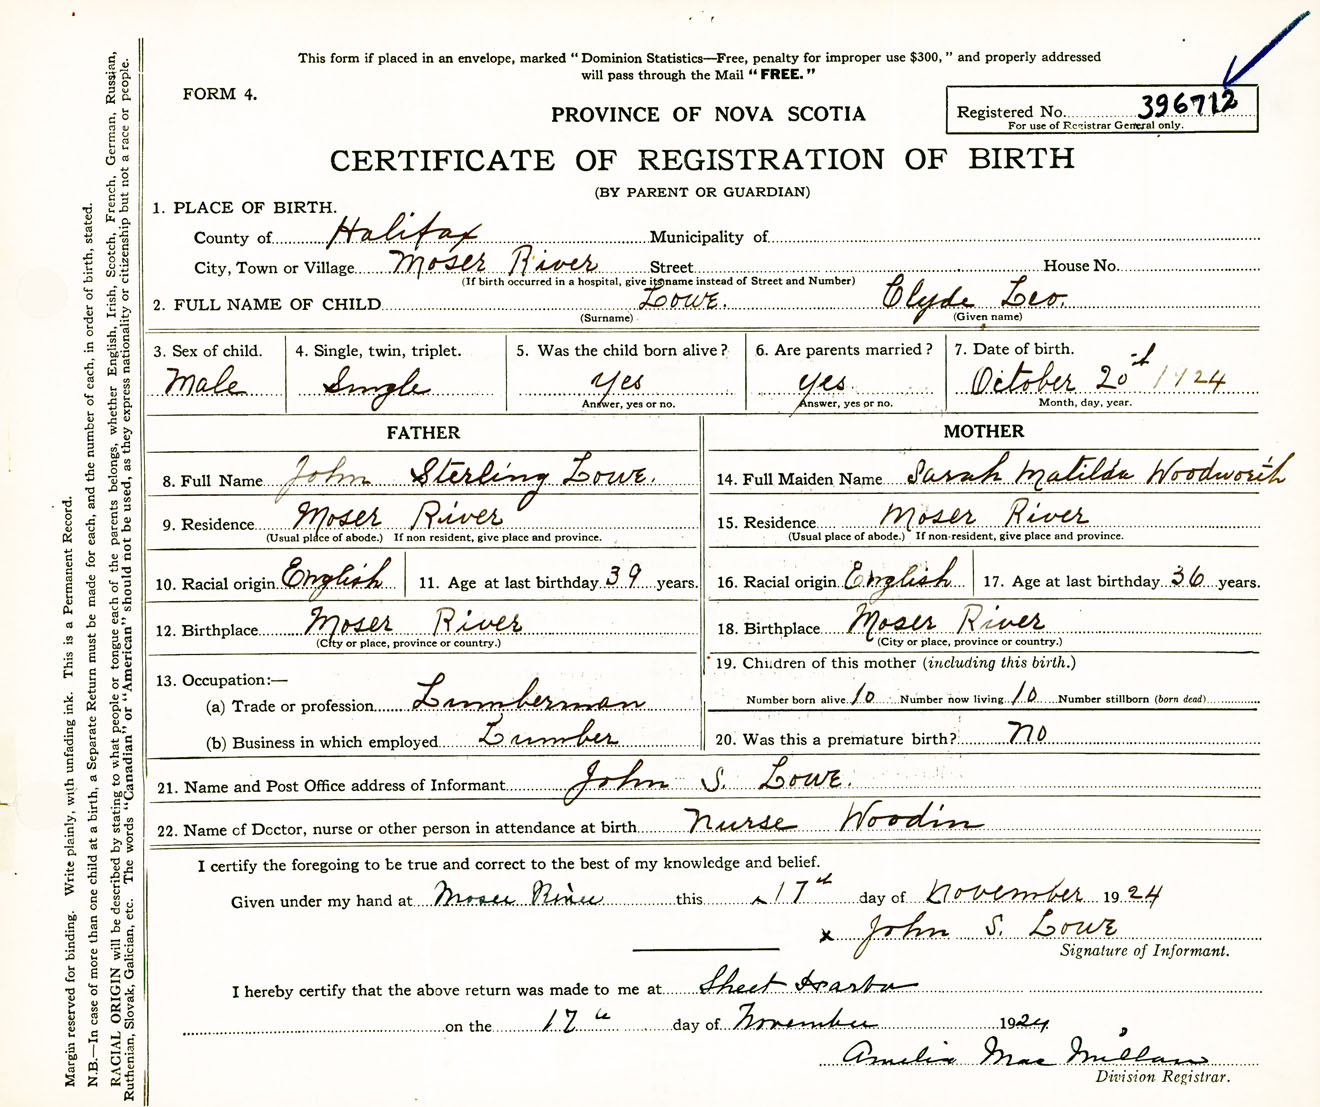 This form if placed in an envelope, marked "Dominion Statistics—Free, penalty for improper use $300," and properly addressed
will pass through the Mail "FREE."
FORM 4.
PROVINCE OF NOVA SCOTIA
Registered No. 396712
For use of Registrar General only.
CERTIFICATE OF REGISTRATION OF BIRTH
(BY PARENT OR GUARDIAN)
1. PLACE OF BIRTH.
County of Halifax Municipality of
City, Town or Village Moser River Street House No.
(If birth occurred in a hospital, give its name instead of Street and Number)
2. FULL NAME OF CHILD Lowe. Clyde Leo.
(Surname) (Given name)
3. Sex of child. 4. Single, twin, triplet. 5. Was the child born alive? 6. Are parents married? 7. Date of birth.
Male Single Yes Yes. October 20th 1924
Answer, yes or no. Answer, yes or no. Month, day, year.
FATHER MOTHER
8. Full Name John Sterling Lowe. 14. Full Maiden Name Sarah Matilda Woodworth
9. Residence Moser River 15. Residence Moser River
(Usual place of abode.) If non resident, give place and province. (Usual place of abode.) If non-resident, give place and province.
10. Racial origin English 11. Age at last birthday 39 years. 16. Racial origin English 17. Age at last birthday 36 years.
12. Birthplace Moser River 18. Birthplace Moser River
(City or place, province or country.) (City or place, province or country.)
19. Children of this mother (including this birth.)
13. Occupation:—
(a) Trade or profession Lumberman Number born alive 10 Number now living 10 Number stillborn (born dead)
(b) Business in which employed Lumber 20. Was this a premature birth? No
21. Name and Post Office address of Informant John S. Lowe.
22. Name of Doctor, nurse or other person in attendance at birth Nurse Woodin
I certify the foregoing to be true and correct to the best of my knowledge and belief.
Given under my hand at Moser River this 17th day of November 1924
x John S. Lowe
Signature of Informant.
I hereby certify that the above return was made to me at Sheet Harbor
on the 17th day of November 1924
Amelia MacMillan
Division Registrar.
Margin reserved for binding. Write plainly, with unfading ink. This is a Permanent Record.
N.B.—In case of more than one child at a birth, a Separate Return must be made for each, and the number of each, in order of birth, stated.
RACIAL ORIGIN will be described by stating to what people or tongue each of the parents belongs, whether English, Irish, Scotch, French, German, Russian,
Ruthenian, Slovak, Galician, etc. The words "Canadian" or "American" should not be used, as they express nationality or citizenship but not a race or people.